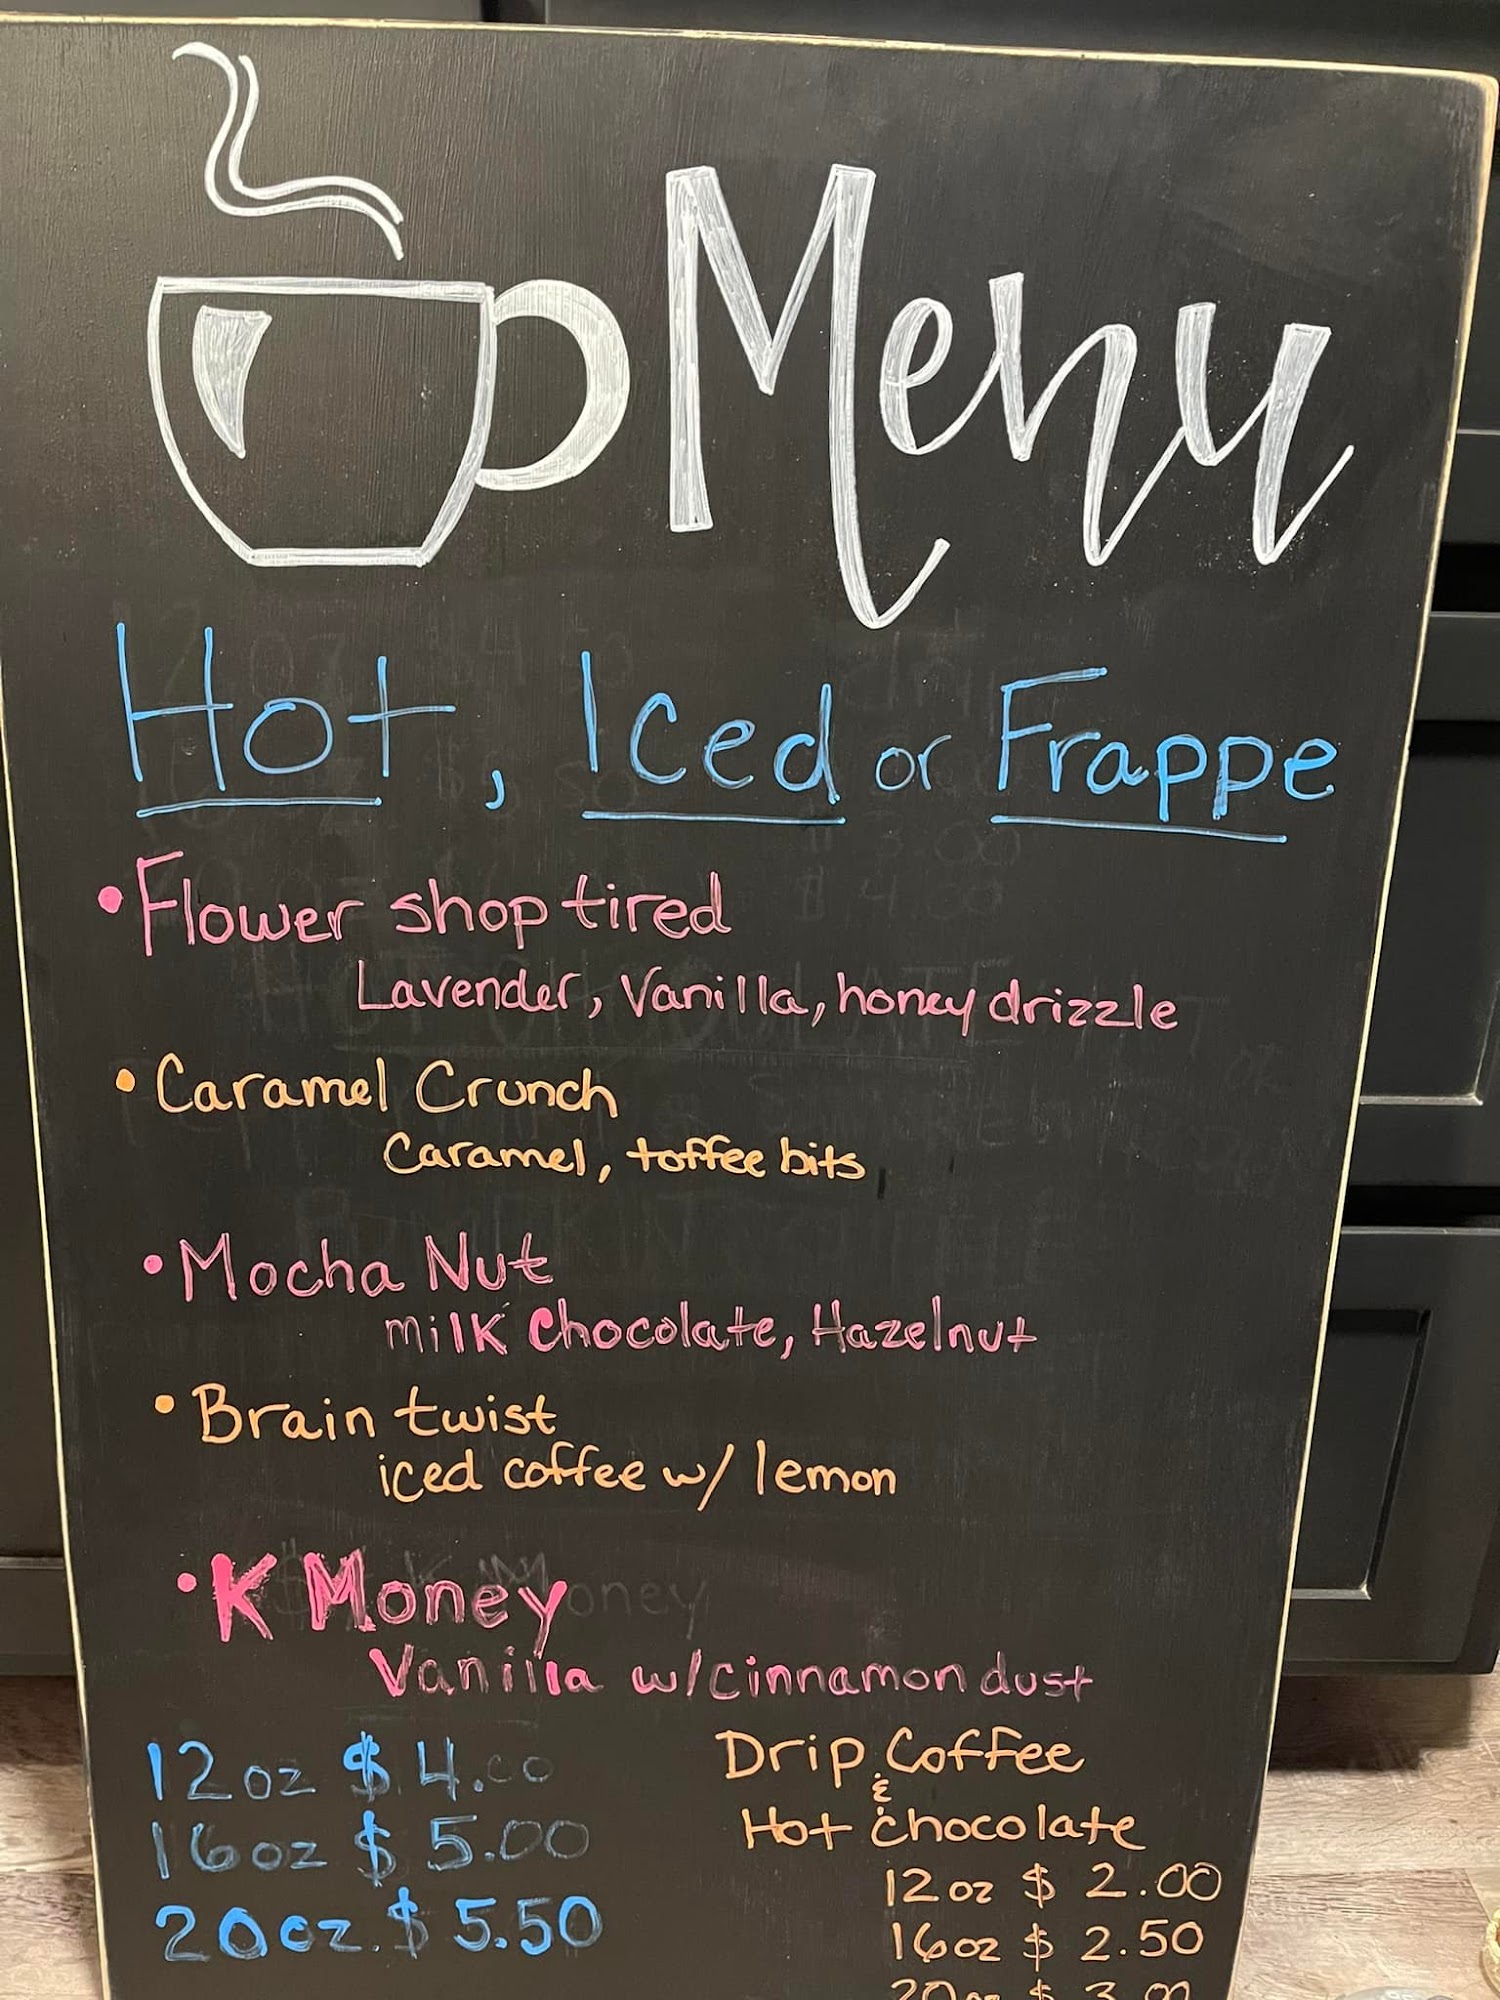 Menu
Hot, Iced or Frappe
• Flower shop tired
Lavender, Vanilla, honey drizzle
• Caramel Crunch
Caramel, toffee bits
• Mocha Nut
milk chocolate, Hazelnut
• Brain twist
iced coffee w/ lemon
• K Money
Vanilla w/cinnamon dust
12oz $4.00
16oz $5.00
20oz. $5.50
Drip Coffee
&
Hot chocolate
12oz $2.00
16oz $2.50
20oz $3.00